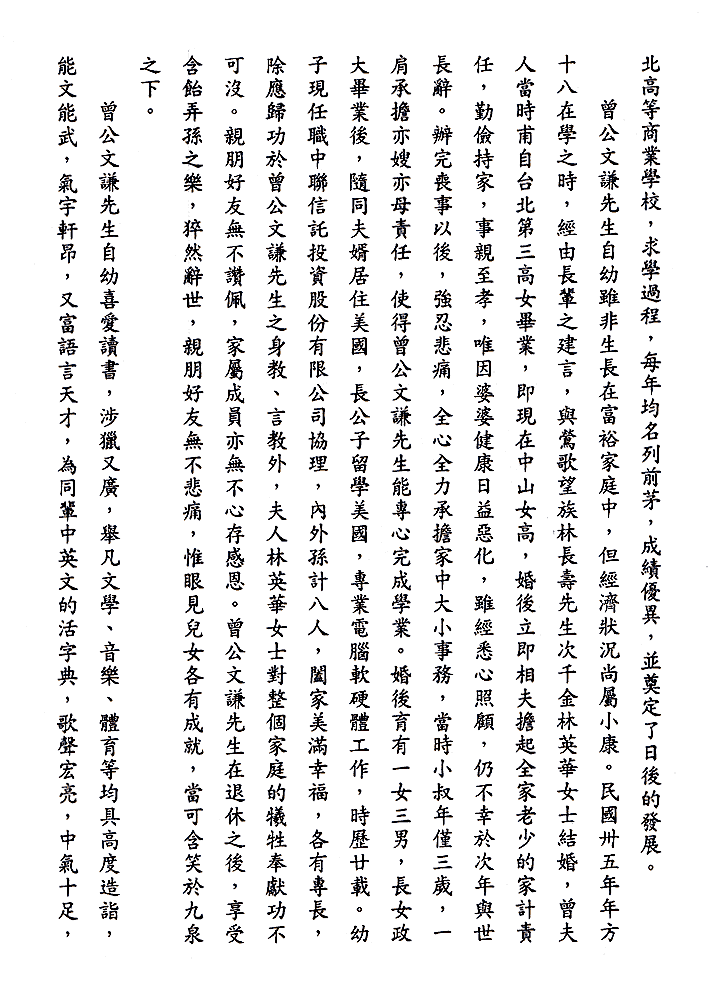 北高等商業學校，求學過程，每年均名列前茅，成績優異，並奠定了日後的發展。
曾公文謙先生自幼雖非生長在富裕家庭中，但經濟狀況尚屬小康。民國卅五年年方
十八在學之時，經由長輩之建言，與鶯歌望族林長壽先生次千金林英華女士結婚，曾夫
人當時甫自台北第三高女畢業，即現在中山女高，婚後立即相夫擔起全家老少的家計責
任，勤儉持家，事親至孝，唯因婆婆健康日益惡化，雖經悉心照顧，仍不幸於次年與世
長辭。辦完喪事以後，強忍悲痛，全心全力承擔家中大小事務，當時小叔年僅三歲，一
肩承擔亦嫂亦母責任，使得曾公文謙先生能專心完成學業。婚後育有一女三男，長女政
大畢業後，隨同夫婿居住美國，長公子留學美國，專業電腦軟硬體工作，時歷廿載。幼
子現任職中聯信託投資股份有限公司協理，內外孫計八人，闔家美滿幸福，各有專長，
除應歸功於曾公文謙先生之身教、言教外，夫人林英華女士對整個家庭的犧牲奉獻功不
可沒。親朋好友無不讚佩，家屬成員亦無不心存感恩。曾公文謙先生在退休之後，享受
含飴弄孫之樂，猝然辭世，親朋好友無不悲痛，惟眼見兒女各有成就，當可含笑於九泉
之下。
曾公文謙先生自幼喜愛讀書，涉獵又廣，舉凡文學、音樂、體育等均具高度造詣，
能文能武，氣宇軒昂，又富語言天才，為同輩中英文的活字典，歌聲宏亮，中氣十足，